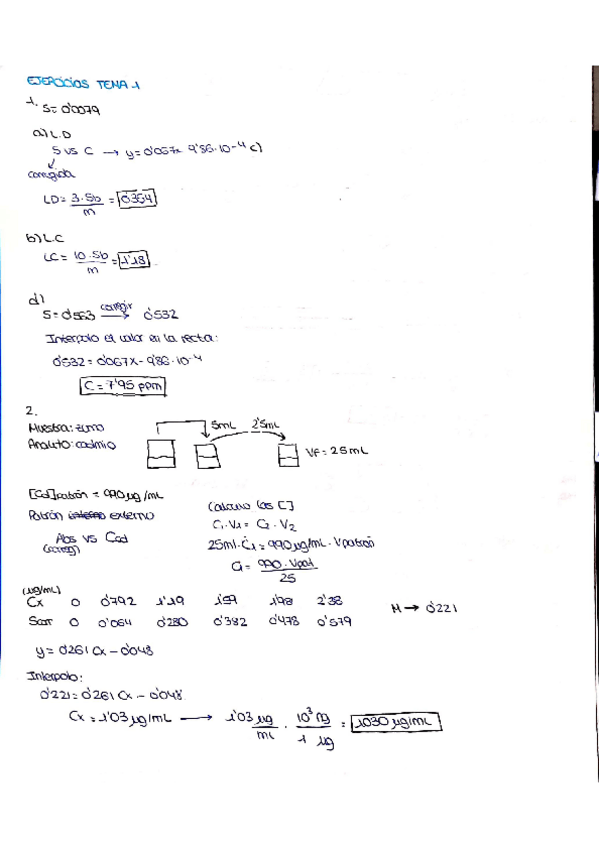 EJERCICIOS TEMA 1
1. S = 0'0079
a) L.D
S vs C → y = 0'067x - 9'86·10⁻⁴ c)
corregida
LD = 3·Sb / m = 0'354
b) L.C
LC = 10·Sb / m = 1'18
d)
S = 0'563 corregir → 0'532
Interpolo el valor en la recta:
0'532 = 0'067x - 9'86·10⁻⁴
C = 7'95 ppm
2.
Muestra: zumo
Analito: cadmio
5mL 2'5mL
VF = 25mL
[Cd]patrón = 990 µg/mL
Patrón interno externo
Abs vs Ccd
(corregir)
Calculo las C]
C₁·V₁ = C₂·V₂
25ml·C₁ = 990 µg/mL·Vpatrón
C₁ = 990·Vpat / 25
(µg/mL)
Cx 0 0'792 1'19 1'59 1'98 2'38
Scorr 0 0'064 0'280 0'382 0'478 0'579
M → 0'221
y = 0'261 Cx - 0'048
Interpolo:
0'221 = 0'261 Cx - 0'048
Cx = 1'03 µg/mL → 1'03 µg / mL · 10³ ng / 1 µg = 1030 µg/mL